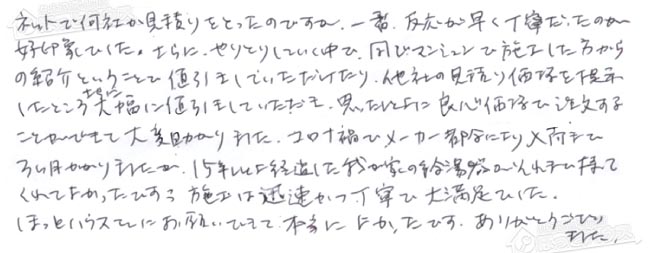 ネットで何社か見積りをとったのですが、一番、反応が早く丁寧だったのが
好印象でした。さらに、やりとりしていく中で、同じマンションで施工した方から
の紹介ということで値引きしていただけたり、他社の見積り価格を提示
したところさらに大幅に値引きしていただき、思った以上に良心価格で注文する
ことができて大変助かりました。コロナ禍でメーカー都合により入荷まで
3ヵ月かかりましたが、15年以上経過した我が家の給湯器がそれまで持って
くれてよかったです。施工は迅速かつ丁寧で大満足でした。
ほっとハウスさんにお願いできて本当によかったです。ありがとうござい
ました。